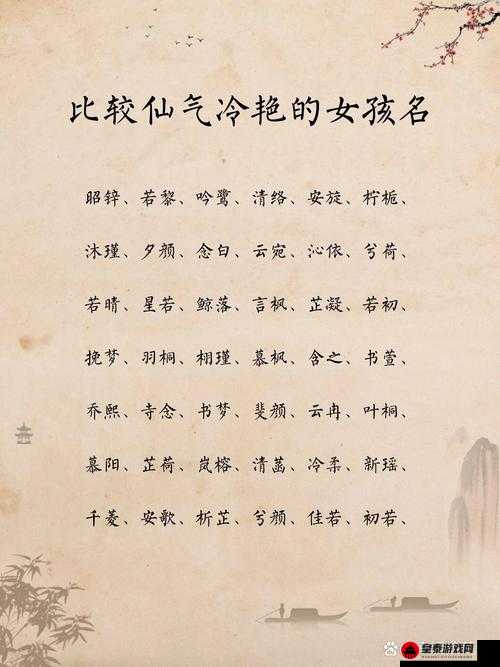 比较仙气冷艳的女孩名
昭锌、若黎、吟鹭、清络、安旋、柠栀、
沐瑾、夕颜、念白、云宛、沁依、兮荷、
若晴、星若、鲸落、言枫、芷凝、若初、
挽梦、羽桐、栩瑾、慕枫、含之、书萱、
乔熙、寺念、书梦、斐颜、云冉、叶桐、
慕阳、芷荷、岚榕、清菡、冷柔、新瑶、
千菱、安歌、析芷、兮颜、佳若、初若、
皇泰游戏网